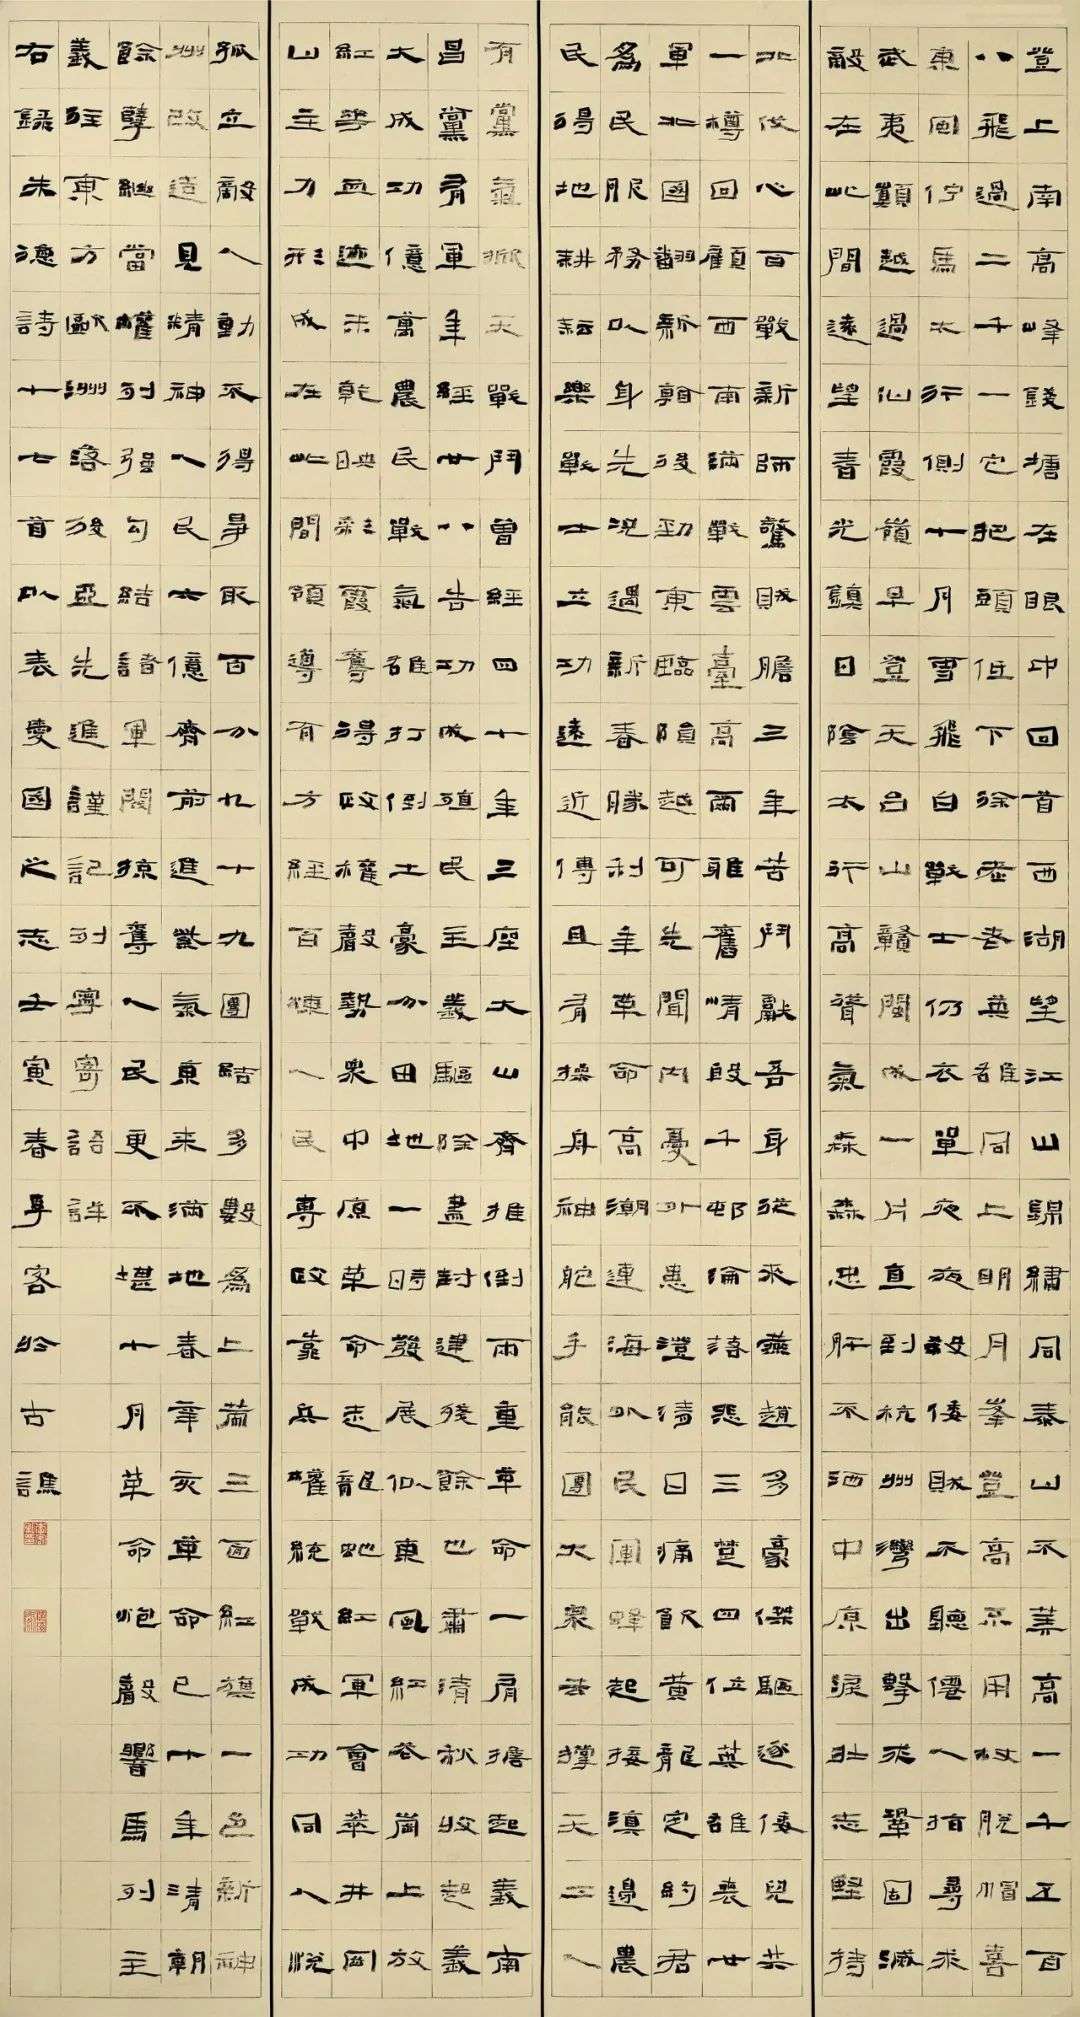 登上南高峰錢塘在眼中回首西湖望江山錦繡同泰山不算高一千五百
八飛過二千一它把頭低下徐老老英雄同上明月峯登高不用杖脫帽喜
東風佇馬太行側十月雪飛白戰士仍衣單夜夜殺倭賊不聽僊人指尋求
武夷顛越過仙霞嶺早登天台山贛閩成一片直到杭州灣出擊求鞏固滅
敵在此間遠望春光鎮日陰太行高聳氣森森忠肝不洒中原淚壯志堅持
北伐心百戰新師驚賊膽三年苦鬥獻吾身從來燕趙多豪傑驅逐倭兒共
一樽回顧西南滿戰雲臺高兩雅舊情殷千邨淪落悲三楚四位英雄喪廿
軍北國翻新翰後勁東臨隕越可先聞內憂外患澄清日痛飲黃龍定約君
爲民服務以身先況遇新春勝利年革命高潮連海外民團蜂起接滇邊農
民得地耕耘樂戰士立功遠近傳且有操舟神舵手能團大衆共撐天工人
有黨氣撼天戰鬥曾經四十年三座大山齊推倒兩重革命一肩擔起義南
昌黨有軍年經廿八告功成殖民主義驅除盡封建殘餘也肅清秋收起義
大成功億萬農民戰氣雄打倒土豪分田地一時發展似東風紅谷崗上放
紅華血迹未乾映彩霞奪得政權聲勢衆中原革命志龍蛇紅軍會萃井岡
山主力形成在此間領導有方經百煉人民專政靠兵權統戰成功同人悅
孤立敵人動不得爭取百分九十九團結多數爲上篇三面紅旗一色新神
州改造見精神人民六億齊前進紫氣東來滿地春辛亥革命已十年清朝
餘孽繼當權列強勾結諸軍閥掠奪人民更不堪十月革命炮聲響馬列主
義狂東方歐洲落後亞先進謹記列寧寄語詳
右錄朱德詩十七首以表愛國之志壬寅春粵客於古譙